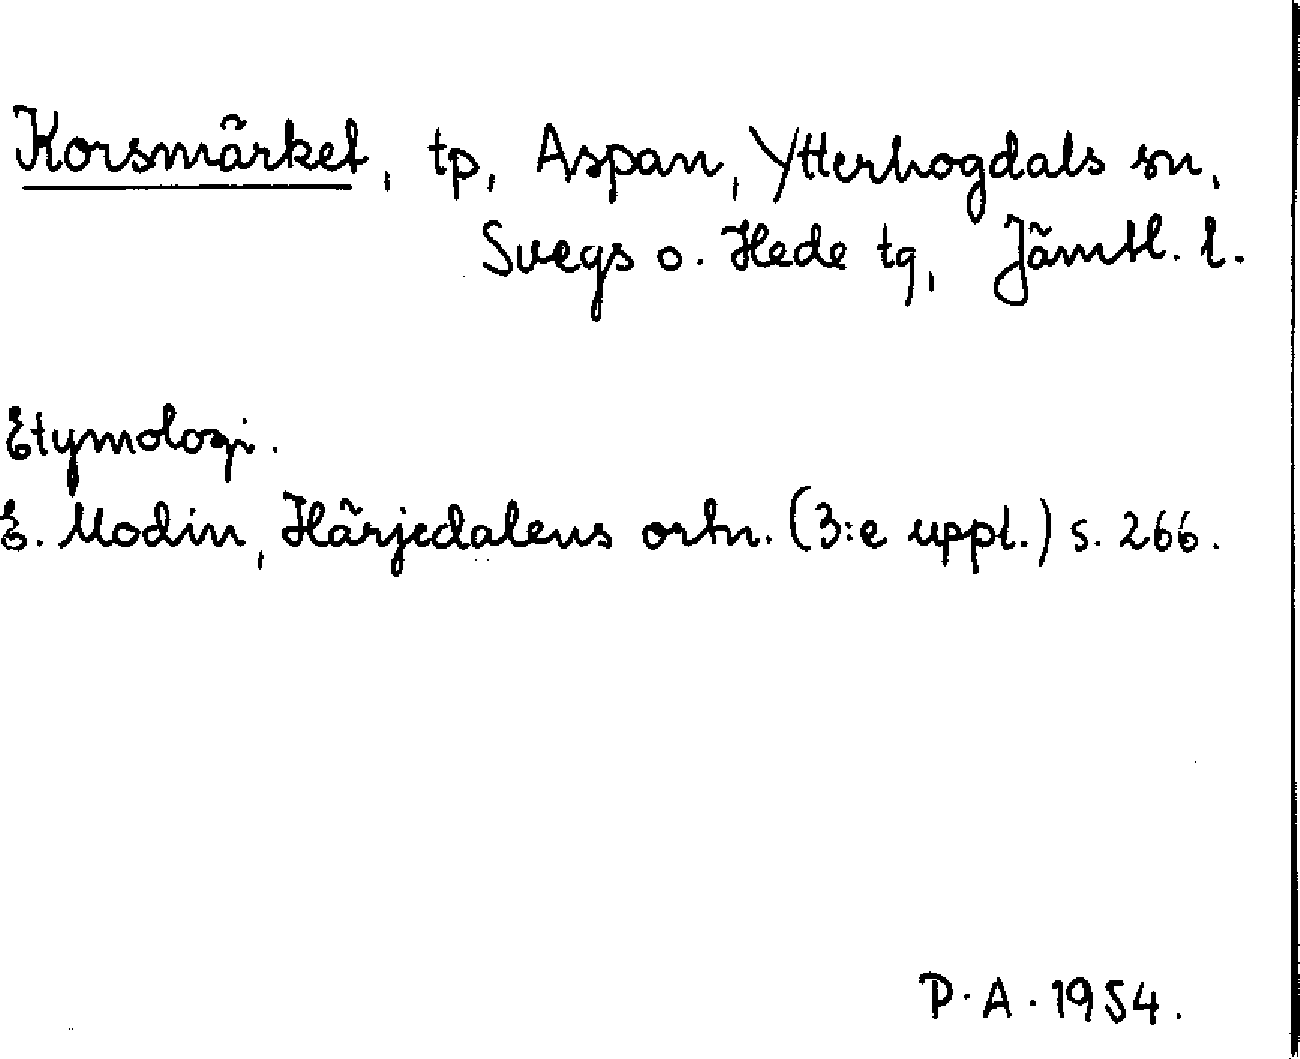 Korsmärket, tp, Aspan, Ytterhogdals sn,
Svegs o. Hede tg, Jämtl. l.
Etymologi.
E. Modin, Härjedalens ortn. (3:e uppl.) s. 266.
P.A. 1954.